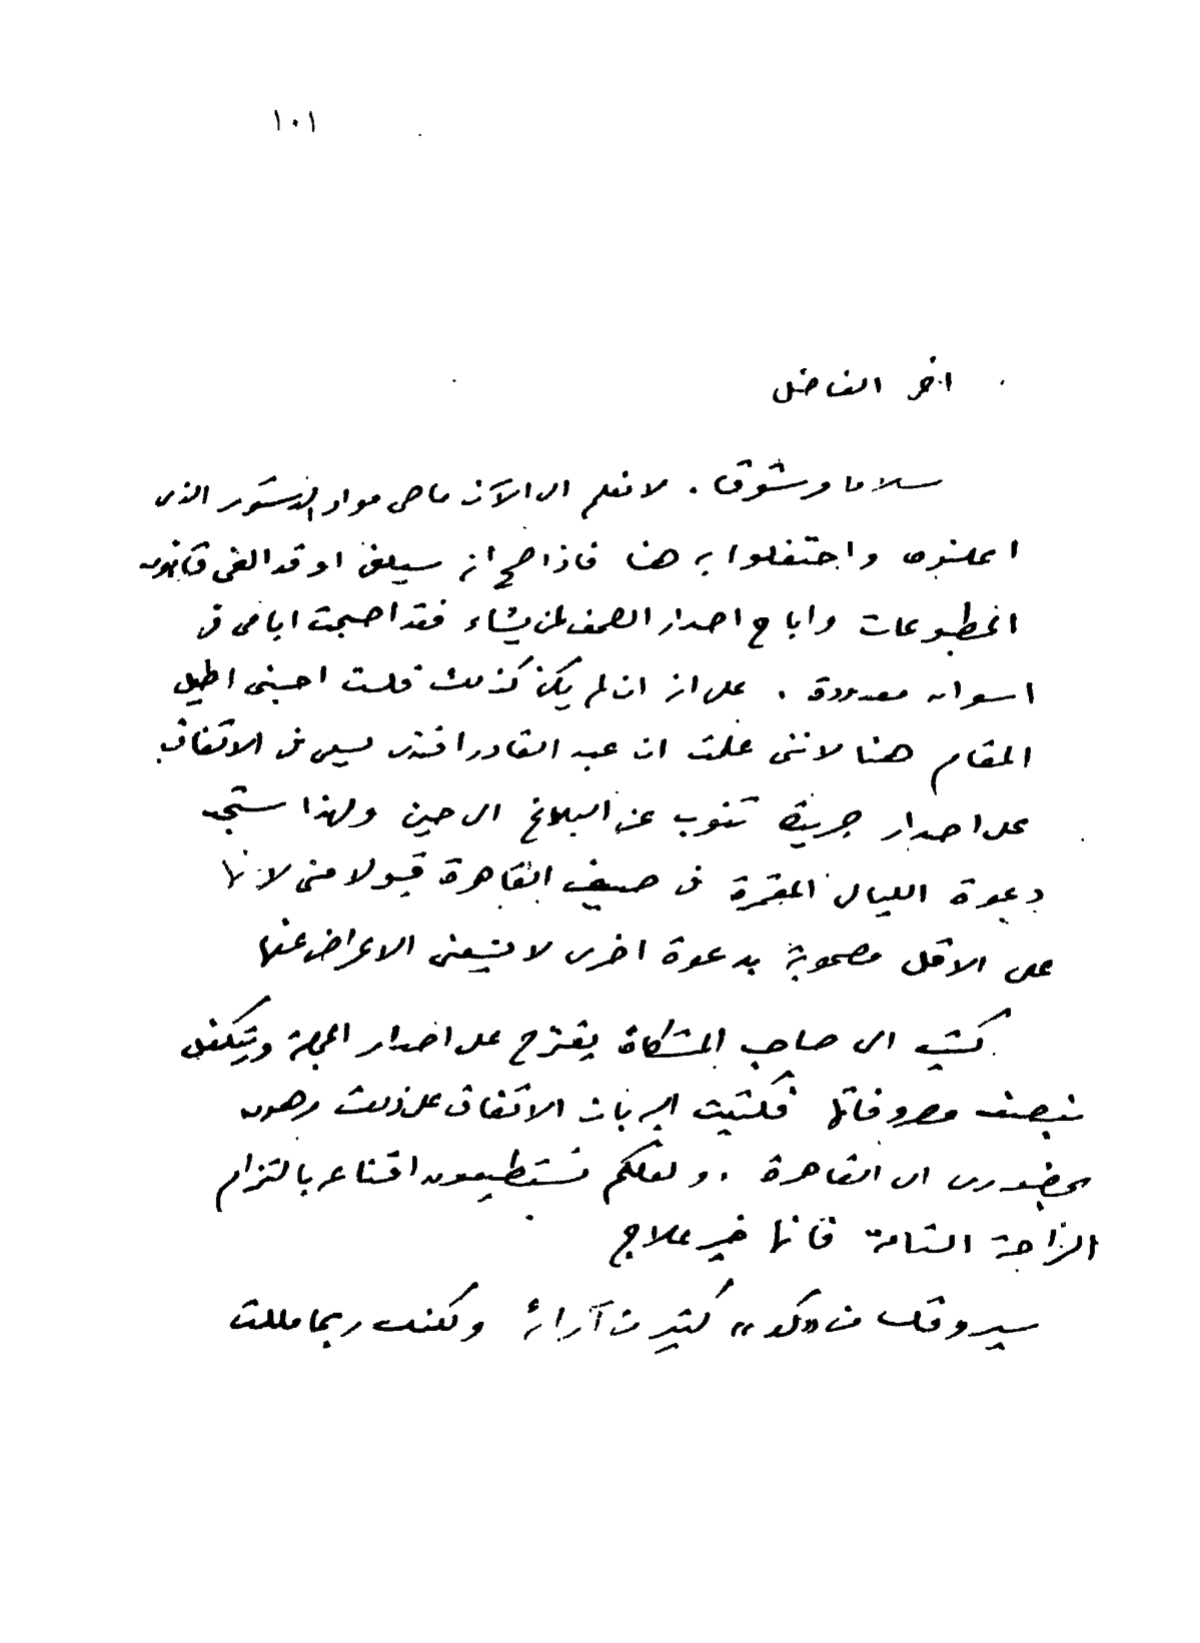 ١٠١
اخى الفاضل
سلاما وشوقا . لا نعلم الى الآن ما هى مواد الدستور الذى
اعلنوه واحتفلوا به هنا فاذا صح انه سيلغى او قد الغى قانون
المطبوعات واباح اصدار الصحف لمن يشاء فقد اصبحت ايامى فى
اسوان معدودة . على انه ان لم يكن كذلك فلست احسبنى اطيل
المقام هنا لاننى علمت ان عبد القادر افندى يسعى فى الاتفاق
على اصدار جريدة تنوب عن البلاغ الى حين ولهذا ستجد
دعوة الليالى المقمرة فى صيف القاهرة قبولا منى لانها
على الاقل مصحوبة بدعوة اخرى لا يسعنى الاعراض عنها
كتب الى صاحب المشكاة يقترح على اصدار المجلة ويتكفل
بنصف مصروفاتها فكتبت اليه بان الاتفاق على ذلك مرهون
بحضورى الى القاهرة . ولعلكم تستطيعون اقناعه بالتزام
الراحة التامة فانها خير علاج
سيروقك من «كو» كثير من آرائه ولكنك ربما مللت